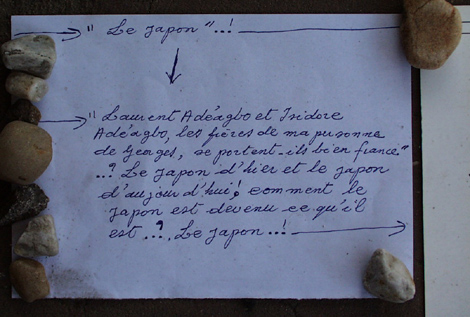 " Le Japon "..!
" Laurent Adéagbo et Isidore
Adéagbo, les fières de ma personne
de Georges, se portent-ils bien france"
..? Le Japon d'hier et le Japon
d'aujourd'hui! comment le
Japon est devenu ce qu'il
est ..?. Le Japon ..!